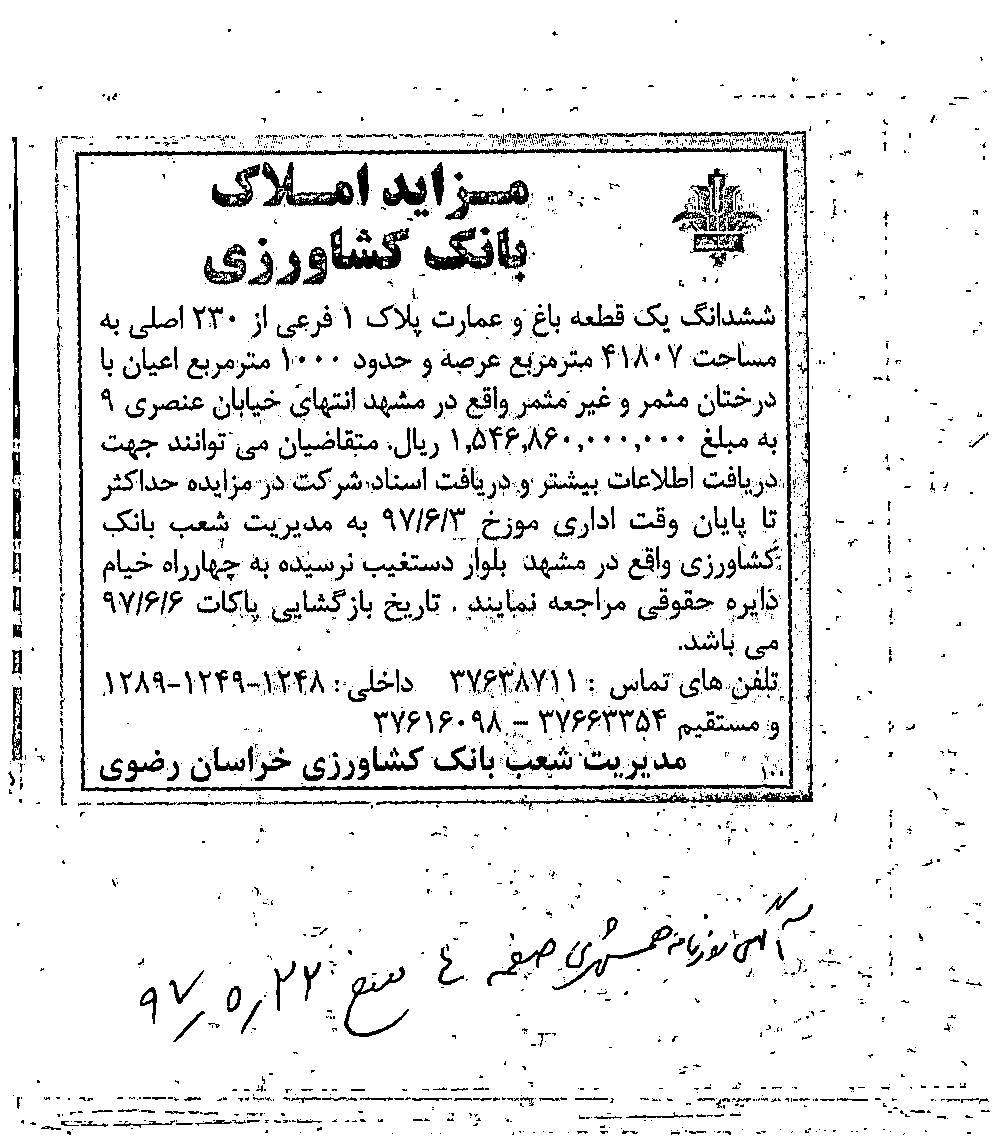 مزاید املاک
بانک کشاورزی
ششدانگ یک قطعه باغ و عمارت پلاک ۱ فرعی از ۲۳۰ اصلی به
مساحت ۴۱۸۰۷ مترمربع عرصه و حدود ۱۰۰۰ مترمربع اعیان با
درختان مثمر و غیر مثمر واقع در مشهد انتهای خیابان عنصری ۹
به مبلغ ۱,۵۴۶,۸۶۰,۰۰۰,۰۰۰ ریال. متقاضیان می توانند جهت
دریافت اطلاعات بیشتر و دریافت اسناد شرکت در مزایده حداکثر
تا پایان وقت اداری مورخ ۹۷/۶/۳ به مدیریت شعب بانک
کشاورزی واقع در مشهد بلوار دستغیب نرسیده به چهارراه خیام
دایره حقوقی مراجعه نمایند . تاریخ بازگشایی پاکات ۹۷/۶/۶
می باشد.
تلفن های تماس : ۳۷۶۳۸۷۱۱ داخلی : ۱۲۴۸-۱۲۴۹-۱۲۸۹
و مستقیم ۳۷۶۶۳۳۵۴ - ۳۷۶۱۶۰۹۸
مدیریت شعب بانک کشاورزی خراسان رضوی
۱۰۰
آگهی روزنامه همشهری صفحه ٤ مورخ ۹۷/۵/۲۲